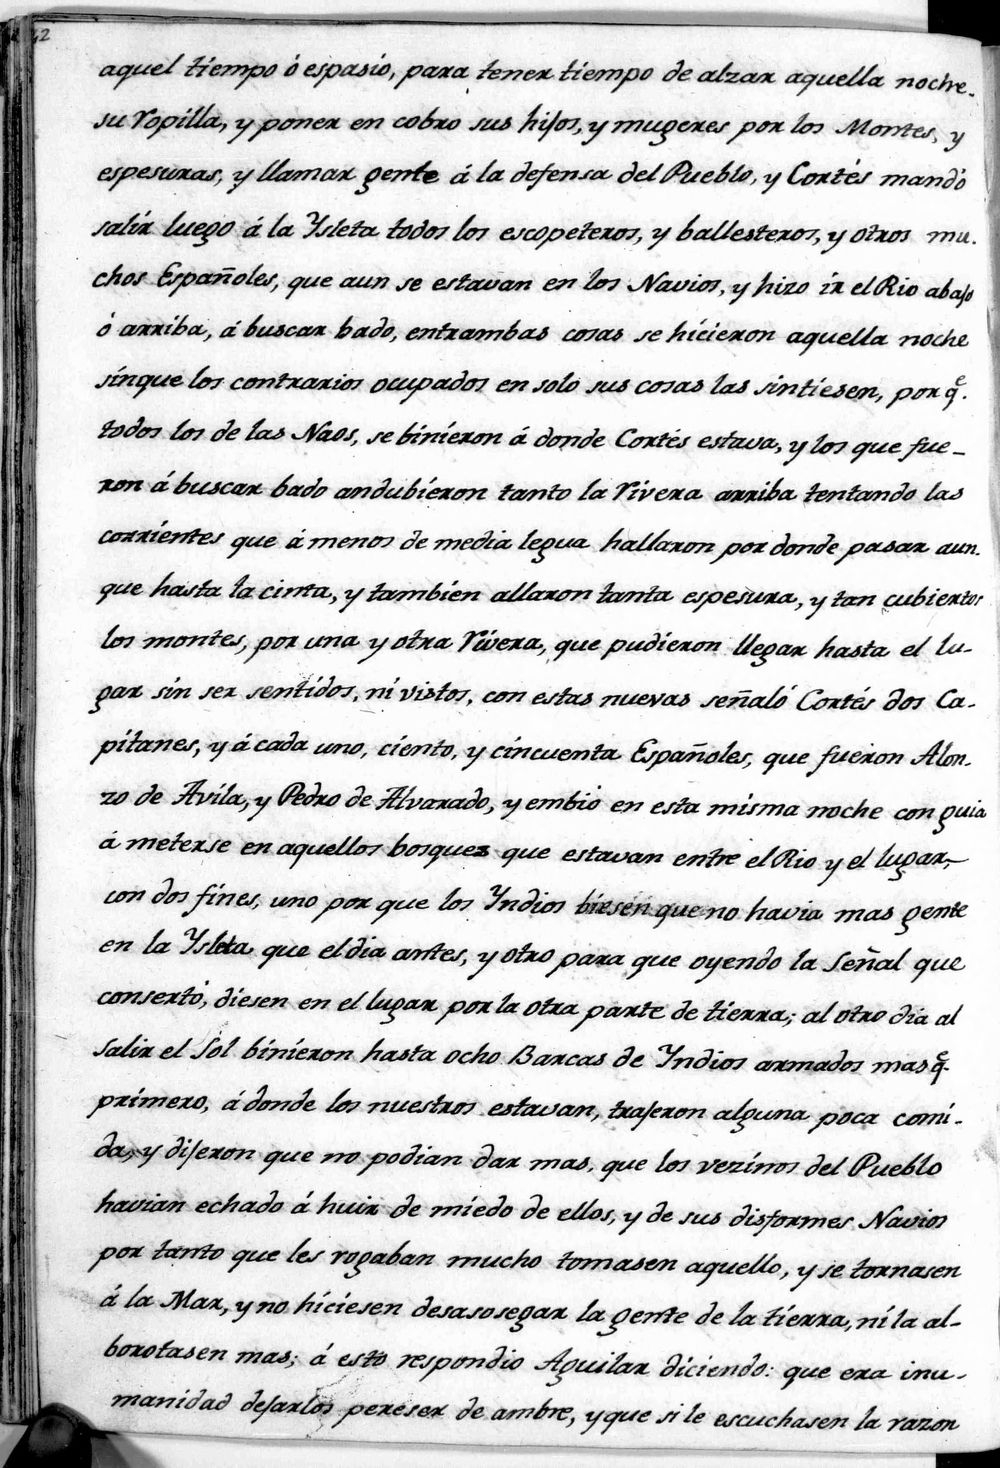 42
aquel tiempo ó espasio, para tener tiempo de alzar aquella noche
su ropilla, y poner en cobro sus hijos, y mugeres por los Montes, y
espesuras, y llamar gente á la defensa del Pueblo, y Cortés mandó
salir luego á la Ysleta todos los escopeteros, y ballesteros, y otros mu-
chos Españoles, que aun se estavan en los Navios, y hizo ir el Rio abajo
ó arriba, á buscar bado, entrambas cosas se hicieron aquella noche
sinque los contrarios ocupados en solo sus cosas las sintiesen, por q.e
todos los de las Naos, se binieron á donde Cortés estava, y los que fue-
ron á buscar bado andubieron tanto la rivera arriba tentando las
corrientes que á menos de media legua hallaron por donde pasar aun-
que hasta la cinta, y tambien allaron tanta espesura, y tan cubiertos
los montes, por una y otra rivera, que pudieron llegar hasta el lu-
gar sin ser sentidos, ni vistos, con estas nuevas señaló Cortés dos Ca-
pitanes, y á cada uno, ciento, y cincuenta Españoles, que fueron Alon-
zo de Avila, y Pedro de Alvarado, y embió en esta misma noche con guia
á meterse en aquellos bosquez que estavan entre el Rio y el lugar,
con dos fines, uno por que los Yndios biesen que no havia mas gente
en la Ysleta que el dia antes, y otro para que oyendo la Señal que
consertó, diesen en el lugar por la otra parte de tierra; al otro dia al
salir el Sol binieron hasta ocho Barcas de Yndios armados mas q.e
primero, á donde los nuestros estavan, trajeron alguna poca comi-
da, y dijeron que no podian dar mas, que los vezinos del Pueblo
havian echado á huir de miedo de ellos, y de sus disformes Navios
por tanto que les rogaban mucho tomasen aquello, y se tornasen
á la Mar, y no hiciesen desasosegar la gente de la tierra, ni la al-
borotasen mas; á esto respondio Aguilar diciendo: que era inu-
manidad dejarlos pereser de ambre, y que si le escuchasen la razon